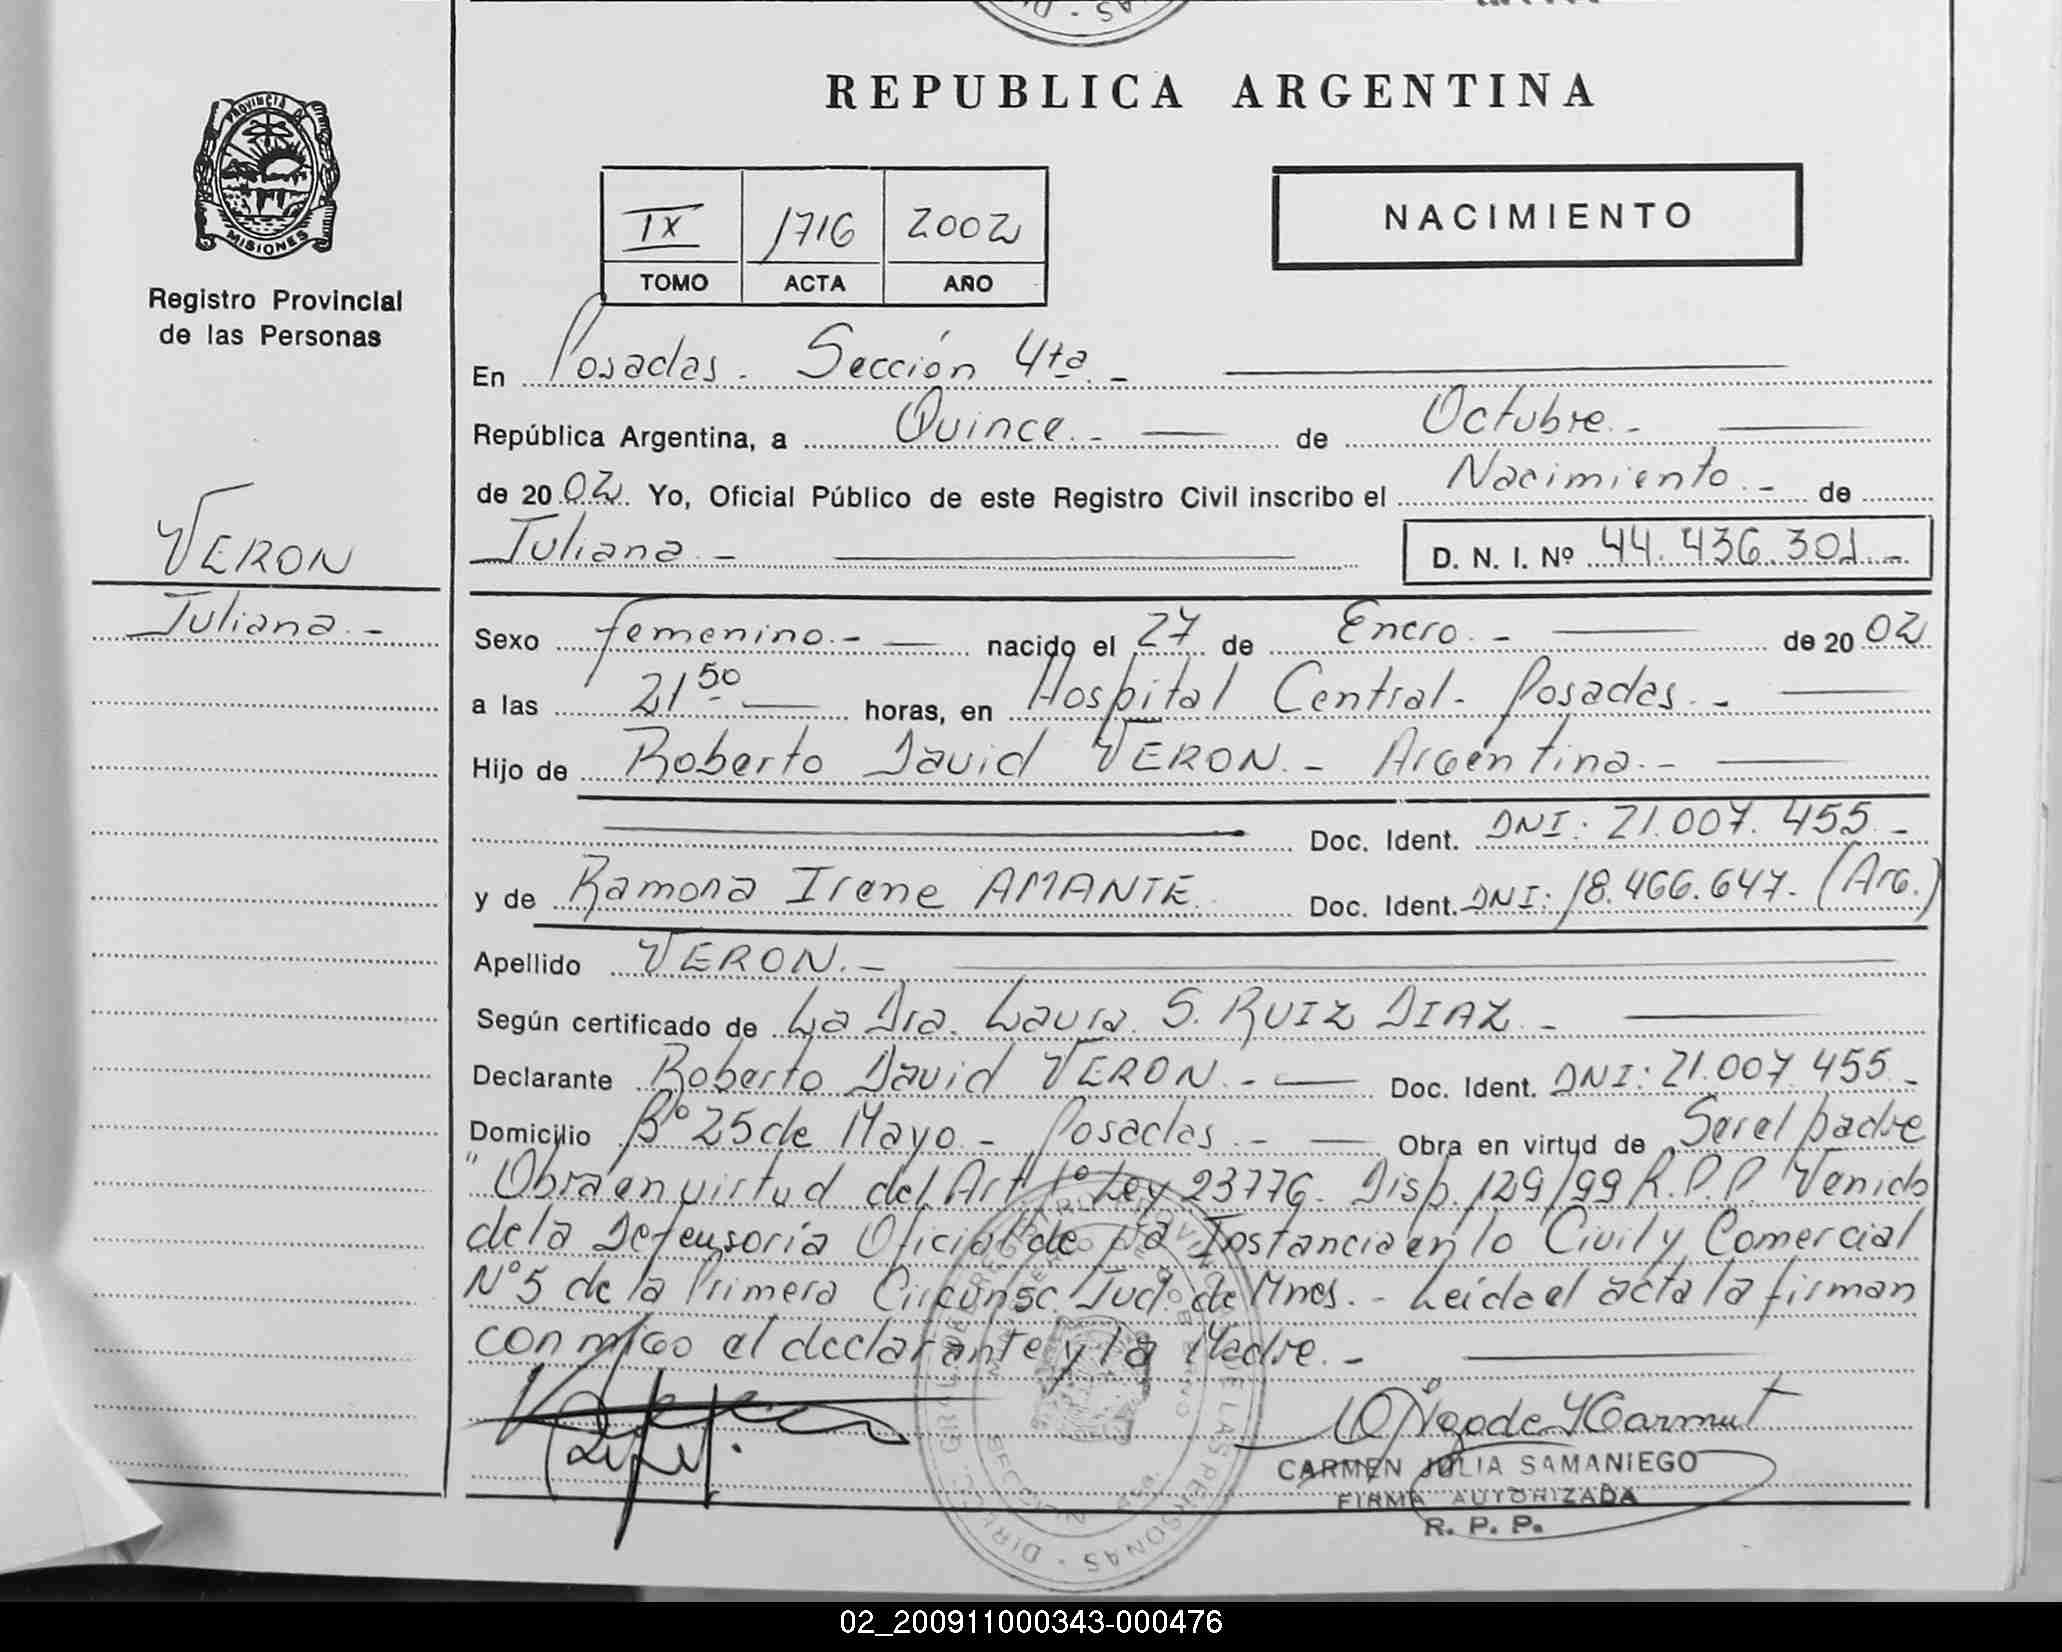 REPUBLICA ARGENTINA
PROVINCIA DE
MISIONES
Registro Provincial
de las Personas
IX 1716 2002
TOMO ACTA AÑO
NACIMIENTO
En Posadas. Sección 4ta. -
República Argentina, a Quince. - de Octubre. -
de 2002. Yo, Oficial Público de este Registro Civil inscribo el Nacimiento. - de
Juliana. - D. N. I. Nº 44.436.301. -
VERON
Juliana. -
Sexo femenino. - nacido el 27 de Enero. - de 2002
a las 21 50 horas, en Hospital Central - Posadas. -
Hijo de Roberto David VERON. - Argentina. -
Doc. Ident. DNI: 21.007.455. -
y de Ramona Irene AMANTE. Doc. Ident. DNI: 18.466.647. (Arg.)
Apellido VERON. -
Según certificado de La Dra. Laura S. RUIZ DIAZ. -
Declarante Roberto David VERON. - Doc. Ident. DNI: 21.007.455. -
Domicilio Bº 25 de Mayo - Posadas. - Obra en virtud de Ser el padre
"Obra en virtud del Art 1º Ley 23776. Disp. 129/99 R.P.P. Venido
de la Defensoría Oficial de Instancia en lo Civil y Comercial
Nº 5 de la Primera Circunsc. Jud. de Mnes. - Leída el acta la firman
conmigo el declarante y la Madre. -
CARMEN JULIA SAMANIEGO
FIRMA AUTORIZADA
R. P. P.
02_200911000343-000476